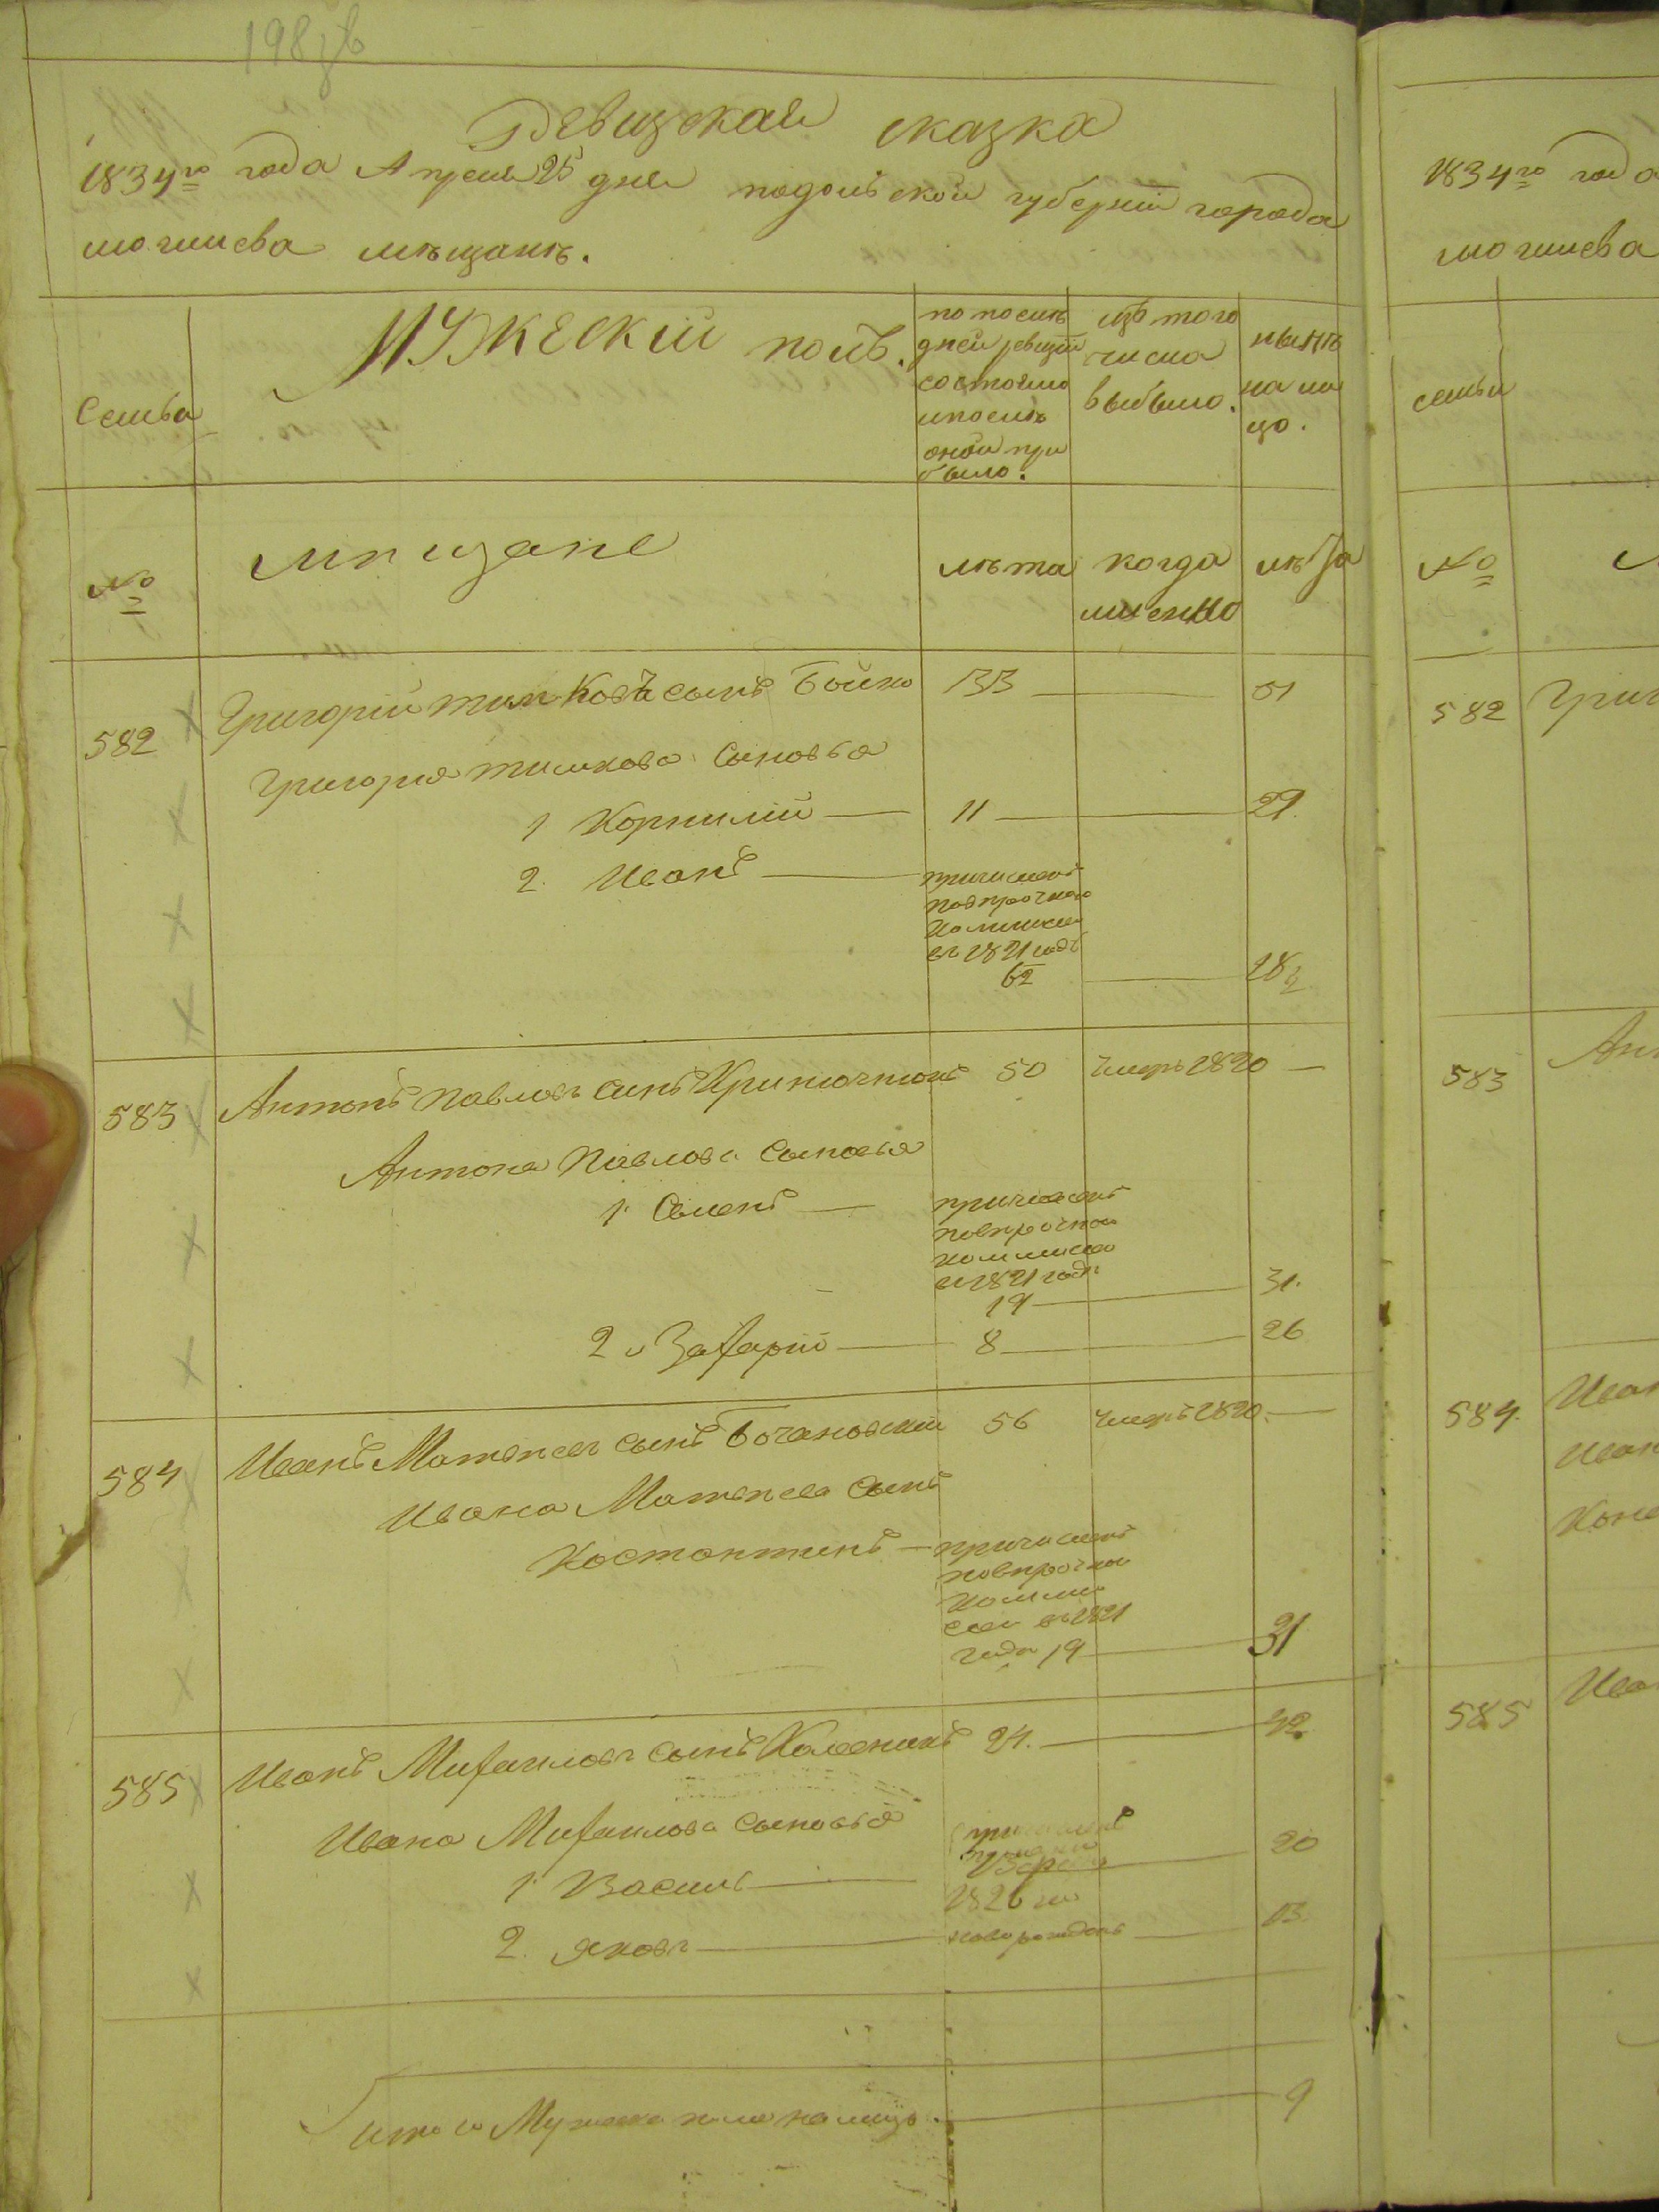 198
Ревизская сказка
1834го года Апреля 25 дня подольской губернии города
могилева мѣщанъ.
Семьи
Мужеский полъ.
по послѣ
дней ревизии
состояло
и послѣ
оной при
было.
изъ того
числа
выбыло.
нынѣ
на ли
цо.
№
мѣщане
лѣта
когда
именно
лѣта
582
Григорий Тимковъ сынъ Бойко 33 — 51
Григория Тимкова сыновья
1 Корнилий — 11 — 29.
2. Иванъ —
причисленъ
по впрочной
комиссии
въ 1821 годъ
6½ — 18½
583
Антонъ Павловъ сынъ 50 умеръ 1820 —
Антона Павлова сыновья
1. Семенъ —
причисленъ
по впрочной
коммисии
въ 1821 годъ
19 — 31.
2. Захарий — 8 — 26
584
Иванъ Матвѣевъ сынъ Бочановский 56 умеръ 1820. —
Ивана Матвѣева сынъ
Костантинъ —
причисленъ
по впрочной
комми
сии въ 1821
годъ 19 — 31
585
Иванъ Михаиловъ сынъ Колесникъ 24. — 42.
Ивана Михаилова сыновья
1. Василь — 20
1826 го
2. Яковъ — новорожденъ — 13.
итого Мужеска пола на лицо. — 9
1834го года
могилева
семьи
№
582
Григ
583
Ант
584.
Иван
Иван
Конс
585
Иван